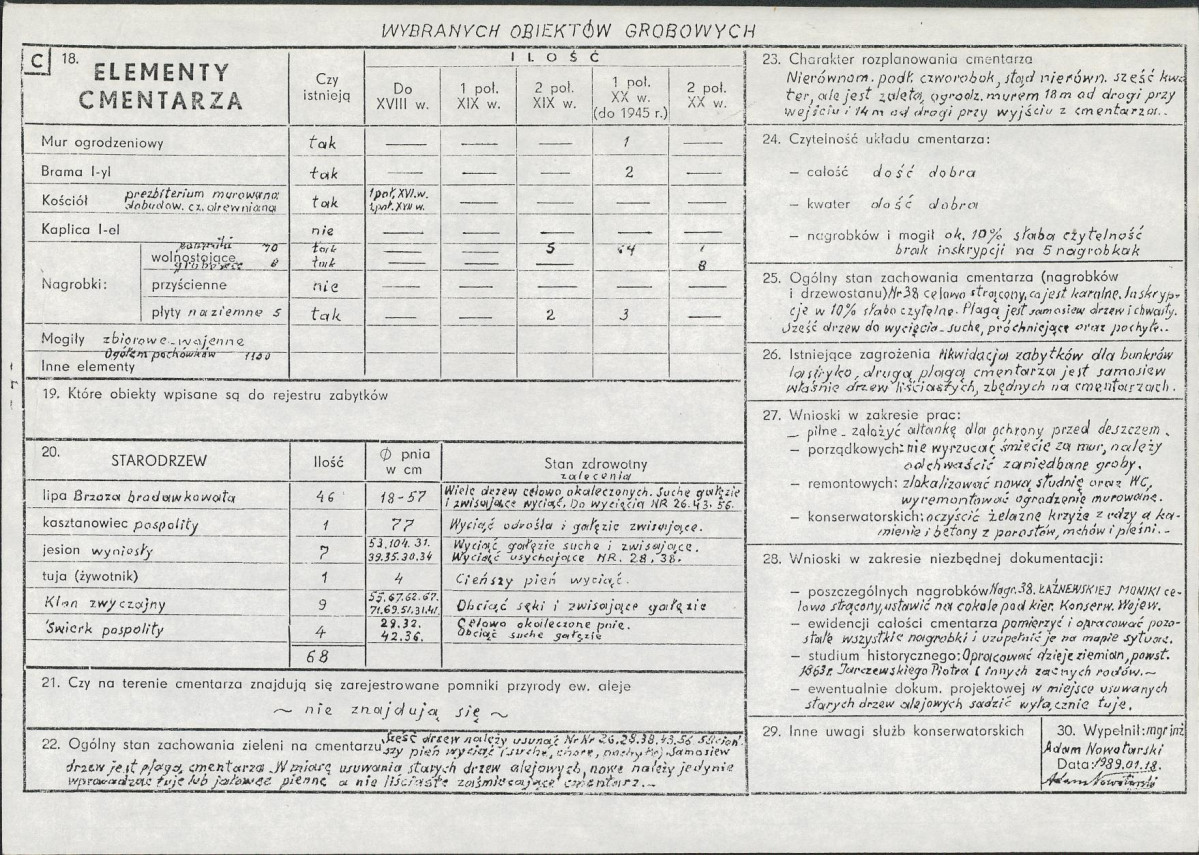 WYBRANYCH OBIEKTÓW GROBOWYCH
C 18. ELEMENTY CMENTARZA
Czy istnieją
ILOŚĆ
Do XVIII w.
1 poł. XIX w.
2 poł. XIX w.
1 poł. XX w. (do 1945 r.)
2 poł. XX w.
Mur ogrodzeniowy tak — — — 1 —
Brama I-yl tak — — — 2 —
Kościół prezbiterium murowana dobudow. cz. drewniana tak 1 poł. XVI.w. — — — —
Kaplica I-el nie — — — — —
Nagrobki:
pomniki 70 tak — — 5 64
wolnostojące
grobowce 8 tak — — 8
przyścienne nie — — — — —
płyty naziemne 5 tak — — 2 3 —
Mogiły zbiorowe-wojenne
Ogółem pochówków 1100
Inne elementy
19. Które obiekty wpisane są do rejestru zabytków
20. STARODRZEW
Ilość
Ø pnia w cm
Stan zdrowotny
zalecenia
lipa Brzoza brodawkowata 46 18-57 Wiele drzew celowo okaleczonych. Suche gałęzie
i zwisające wyciąć. Do wycięcia NR 26.43.56.
kasztanowiec pospolity 1 77 Wyciąć odrośla i gałęzie zwisające.
jesion wyniosły 7 53.104.31. 39.35.30.34 Wyciąć gałęzie suche i zwisające.
Wyciąć usychające NR. 28, 38.
tuja (żywotnik) 1 4 Cieńszy pień wyciąć.
Klon zwyczajny 9 55.67.62.67. 71.69.51.31.41. Obciąć sęki i zwisające gałęzie
Świerk pospolity 4 29.32. 42.36. Celowo okaleczone pnie.
Obciąć suche gałęzie
68
21. Czy na terenie cmentarza znajdują się zarejestrowane pomniki przyrody ew. aleje
~ nie znajdują się ~
22. Ogólny stan zachowania zieleni na cmentarzu Sześć drzew należy usunąć Nr Nr 26.28.38.43.56
szy pień wyciąć (suche, chore, pochyłe). Samosiew
drzew jest plagą cmentarza. W miarę usuwania starych drzew alejowych, nowe należy jedynie
wprowadzać tuje lub jałowiec pienne a nie liściaste zaśmiecające cmentarz.-
23. Charakter rozplanowania cmentarza
Nierównom. podł. czworobok, stąd nierówn. sześć kwa
ter, ale jest zaletą ogrodz. murem 18 m od drogi przy
wejściu i 14 m od drogi przy wyjściu z cmentarza..
24. Czytelność układu cmentarza:
– całość dość dobra
– kwater dość dobra
– nagrobków i mogił ok. 10% słaba czytelność
brak inskrypcji na 5 nagrobkak
25. Ogólny stan zachowania cmentarza (nagrobków
i drzewostanu) Nr 38 celowo strącony, co jest karalne. Inskryp-
cje w 10% słabo czytelne. Plagą jest samosiew drzew i chwasty.
Sześć drzew do wycięcia-suche, próchniejące oraz pochyłe..
26. Istniejące zagrożenia likwidacja zabytków dla bunkrów
lastryko, drugą plagą cmentarza jest samosiew
właśnie drzew liściastych, zbędnych na cmentarzach.
27. Wnioski w zakresie prac:
– pilne - założyć altankę dla ochrony przed deszczem.
– porządkowych: nie wyrzucać śmiecie za mur, należy
odchwaścić zaniedbane groby.
– remontowych: zlokalizować nową studnię oraz WC,
wyremontować ogrodzenie murowane.
– konserwatorskich: oczyścić żelazne krzyże z rdzy a ka-
mienie i betony z porostów, mchów i pleśni.-
28. Wnioski w zakresie niezbędnej dokumentacji:
– poszczególnych nagrobków Nagr. 38. ŁAŹNEWSKIEJ MONIKI ce-
lowo strącony, ustawić na cokole pod kier. Konserw. Wojew.
– ewidencji całości cmentarza pomierzyć i opracować pozo-
stałe wszystkie nagrobki i uzupełnić je na mapie sytuac.
– studium historycznego: Opracować dzieje ziemian, powst.
1863 r. Jurczewskiego Piotra i innych zacnych rodów.-
– ewentualnie dokum. projektowej w miejsce usuwanych
starych drzew alejowych sadzić wyłącznie tuje.
29. Inne uwagi służb konserwatorskich
30. Wypełnił: mgr inż
Adam Nowatorski
Data: 1989.01.18.
Adam Nowatorski